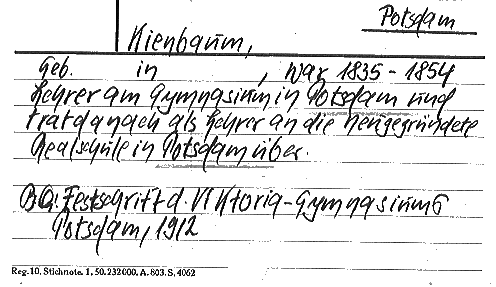 Potsdam
Kienbaum,
Geb. in , war 1835-1854
Lehrer am Gymnasium in Potsdam und
trat danach als Lehrer an die neugegründete
Realschule in Potsdam über.
BG. Festschrift d. Viktoria-Gymnasiums
Potsdam, 1912
Reg. 10. Stichnote. 1, 50. 232000. A. 803. S. 4062